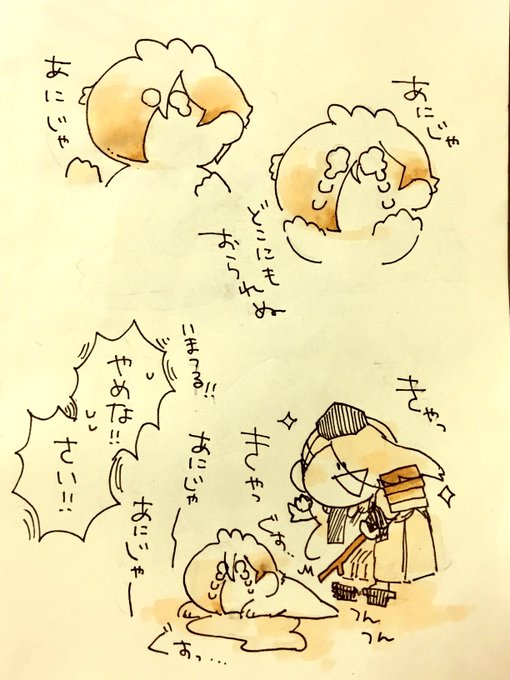 あにじゃ
あにじゃ
どこにも
おられぬ
きゃっ
きゃっ
いまつる!!
やめな!!
さい!!
あにじゃ
あにじゃー
ぐすっ…
つん
つん